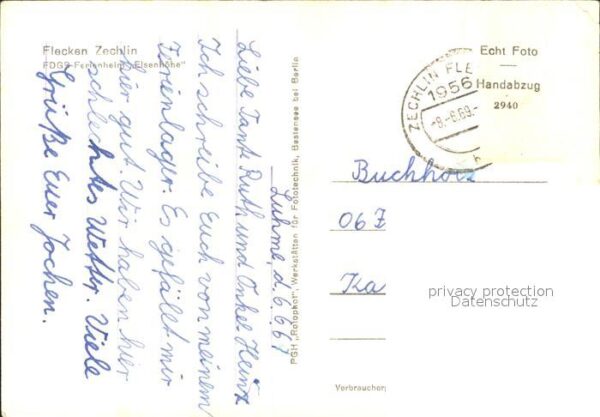 Flecken Zechlin
FDGB-Ferienheim "Elsenhöhe"
Luhme, d. 6.6.67
Liebe Tante Ruth und Onkel Heinz
Ich schreibe Euch von meinem
Ferienlager. Es gefällt mir
hier gut. Wir haben hier
schlechtes Wetter. Viele
Grüße Euer Jochen.
PGH „Rotophot", Werkstätten für Fototechnik, Bestensee bei Berlin
ZECHLIN FLE
1956
-8.-6.69.-
Echt Foto
Handabzug
2940
Buchholz
06Z
Ka
privacy protection
Datenschutz
Verbraucher